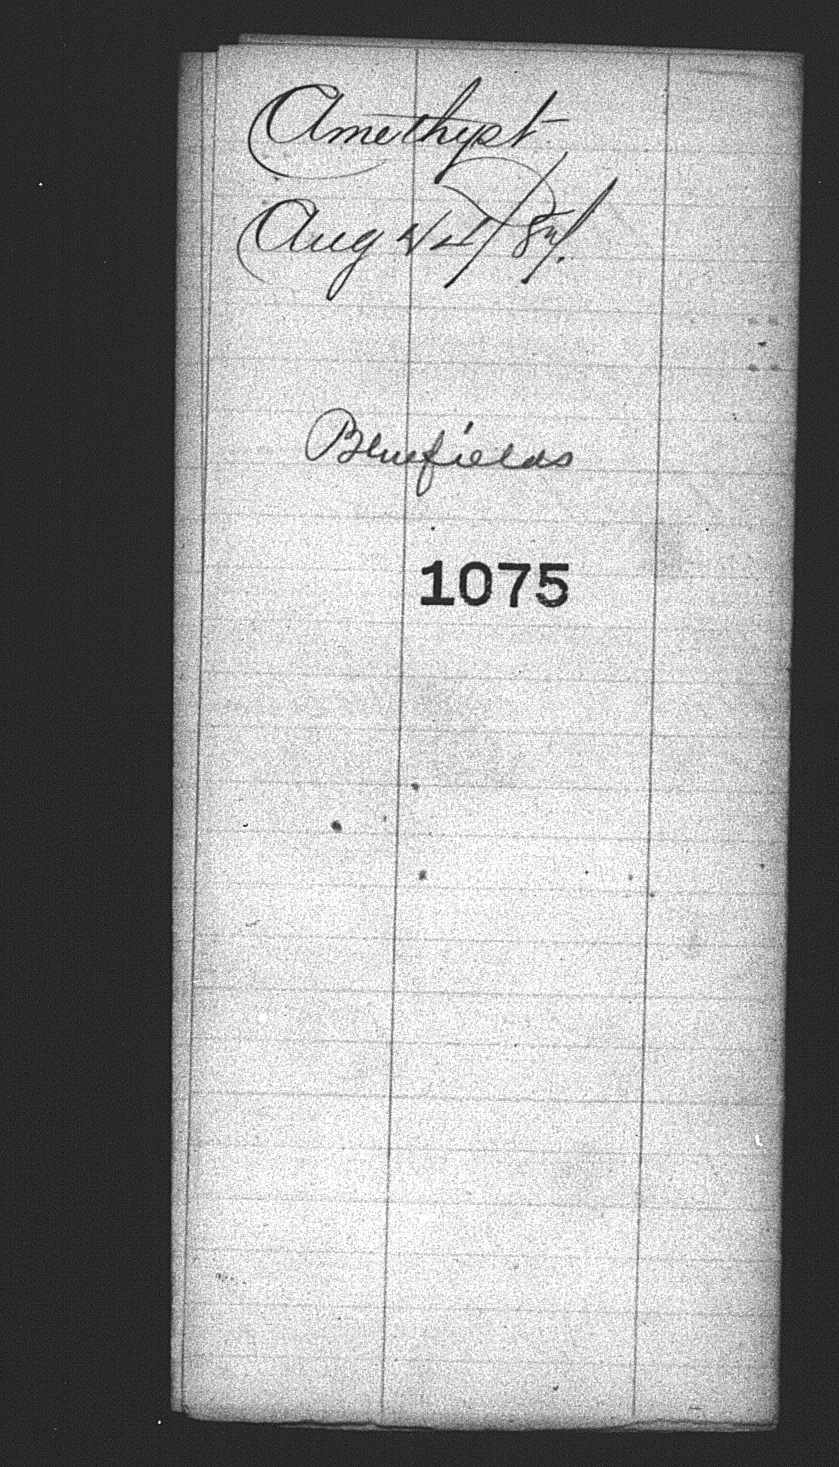 Amethyst
Aug 24/87.
Bluefields
1075